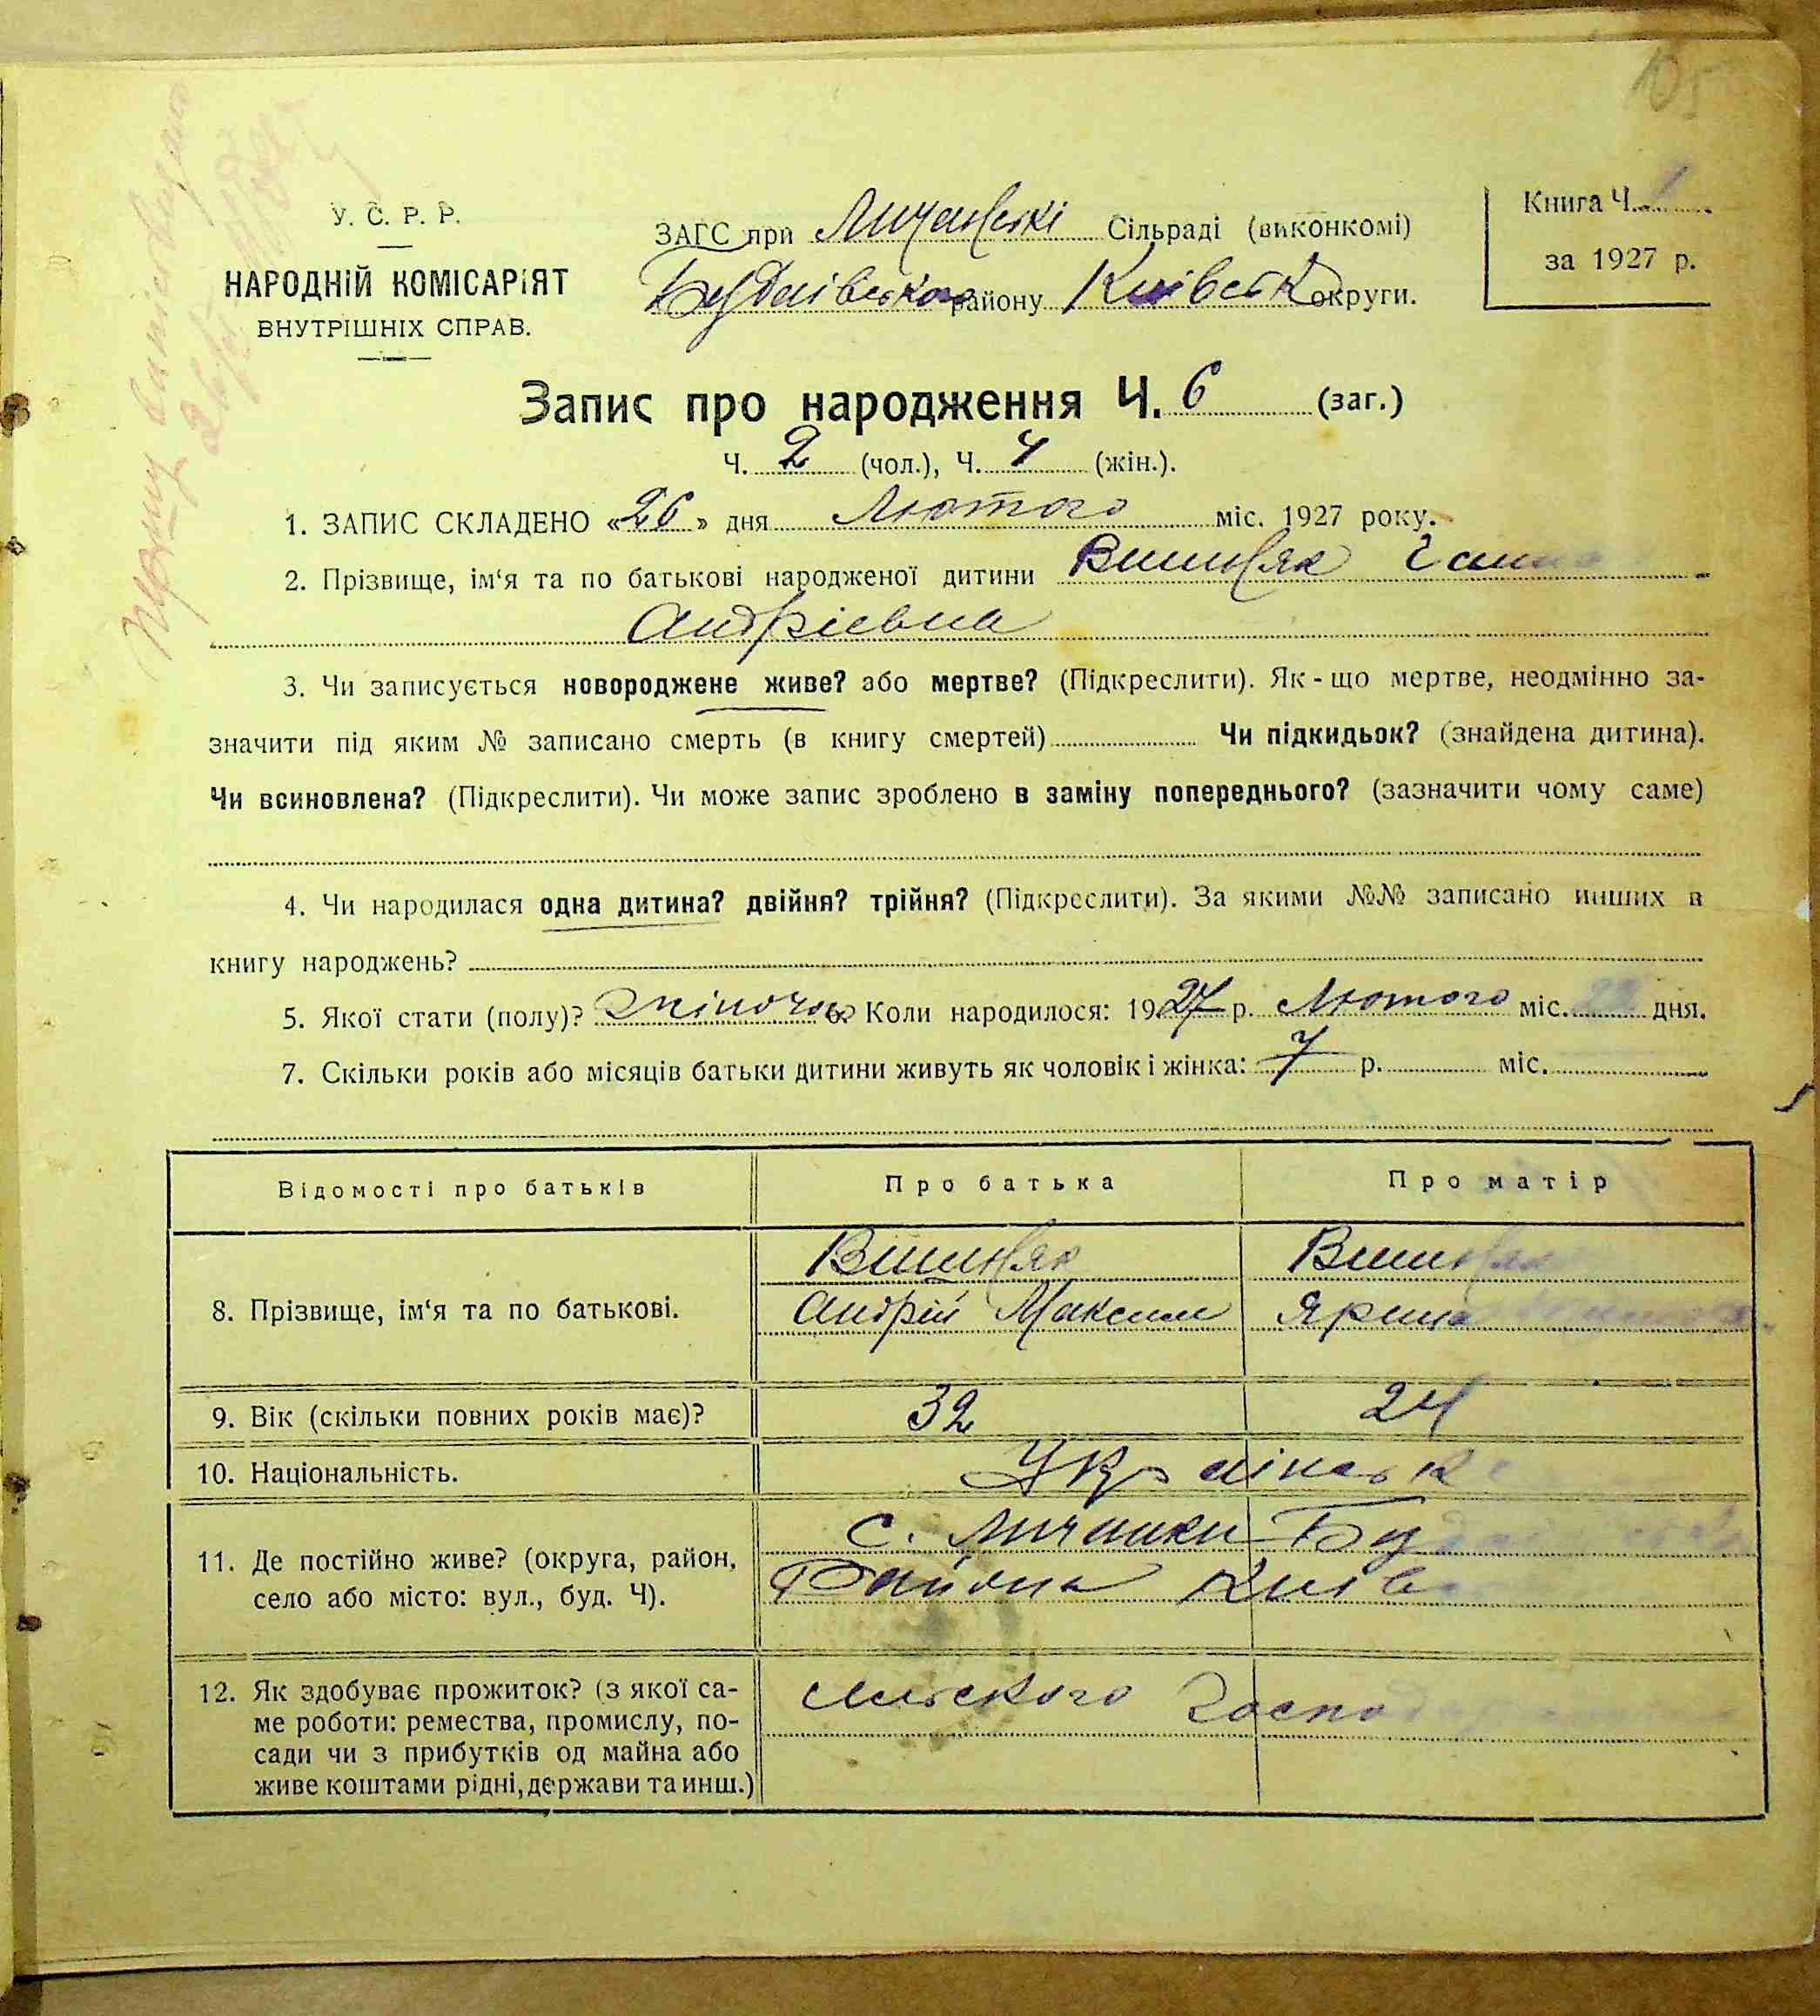 У. С. Р. Р.
НАРОДНІЙ КОМІСАРІЯТ
ВНУТРІШНІХ СПРАВ.
ЗАГС при Личанські Сільраді (виконкомі)
району Київськ округи.
Книга Ч.
за 1927 р.
Запис про народження Ч. 6 (заг.)
Ч. 2 (чол.), Ч. 4 (жін.).
1. ЗАПИС СКЛАДЕНО «26» дня Лютого міс. 1927 року.
2. Прізвище, ім‘я та по батькові народженої дитини Вишняк Ганна
Андрієвна
3. Чи записується новороджене живе? або мертве? (Підкреслити). Як-що мертве, неодмінно за-
значити під яким № записано смерть (в книгу смертей) Чи підкидьок? (знайдена дитина).
Чи всиновлена? (Підкреслити). Чи може запис зроблено в заміну попереднього? (зазначити чому саме)
4. Чи народилася одна дитина? двійня? трійня? (Підкреслити). За якими №№ записано инших в
книгу народжень?
5. Якої стати (полу)? Коли народилося: 1927 р. Лютого міс. 22 дня.
7. Скільки років або місяців батьки дитини живуть як чоловік і жінка: 7 р. міс.
Відомості про батьків
Про батька
Про матір
8. Прізвище, ім‘я та по батькові.
Вишняк
Андрій Максим
Вишняк
Ярина
9. Вік (скільки повних років має)?
32
24
10. Національність.
Українська
11. Де постійно живе? (округа, район,
село або місто: вул., буд. Ч).
с. Личанки Буд
Района Київ
12. Як здобуває прожиток? (з якої са-
ме роботи: ремества, промислу, по-
сади чи з прибутків од майна або
живе коштами рідні, держави та инш.)
сильского Господар